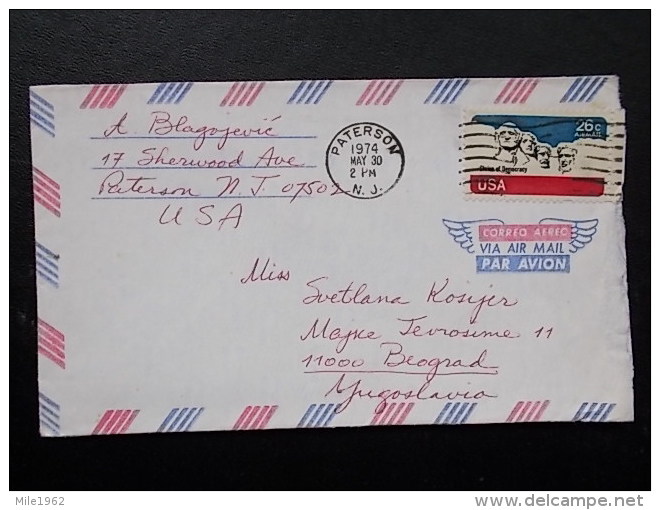 A. Blagojević
17 Sherwood Ave
Paterson N. J. 07502
USA
PATERSON
1974
MAY 30
2 PM
N. J.
26c
AIRMAIL
Shrine of Democracy
USA
CORREO AEREO
VIA AIR MAIL
PAR AVION
Miss
Svetlana Kosijer
Majke Jevrosime 11
11000 Beograd
Yugoslavia
Mile1962
delcampe.net